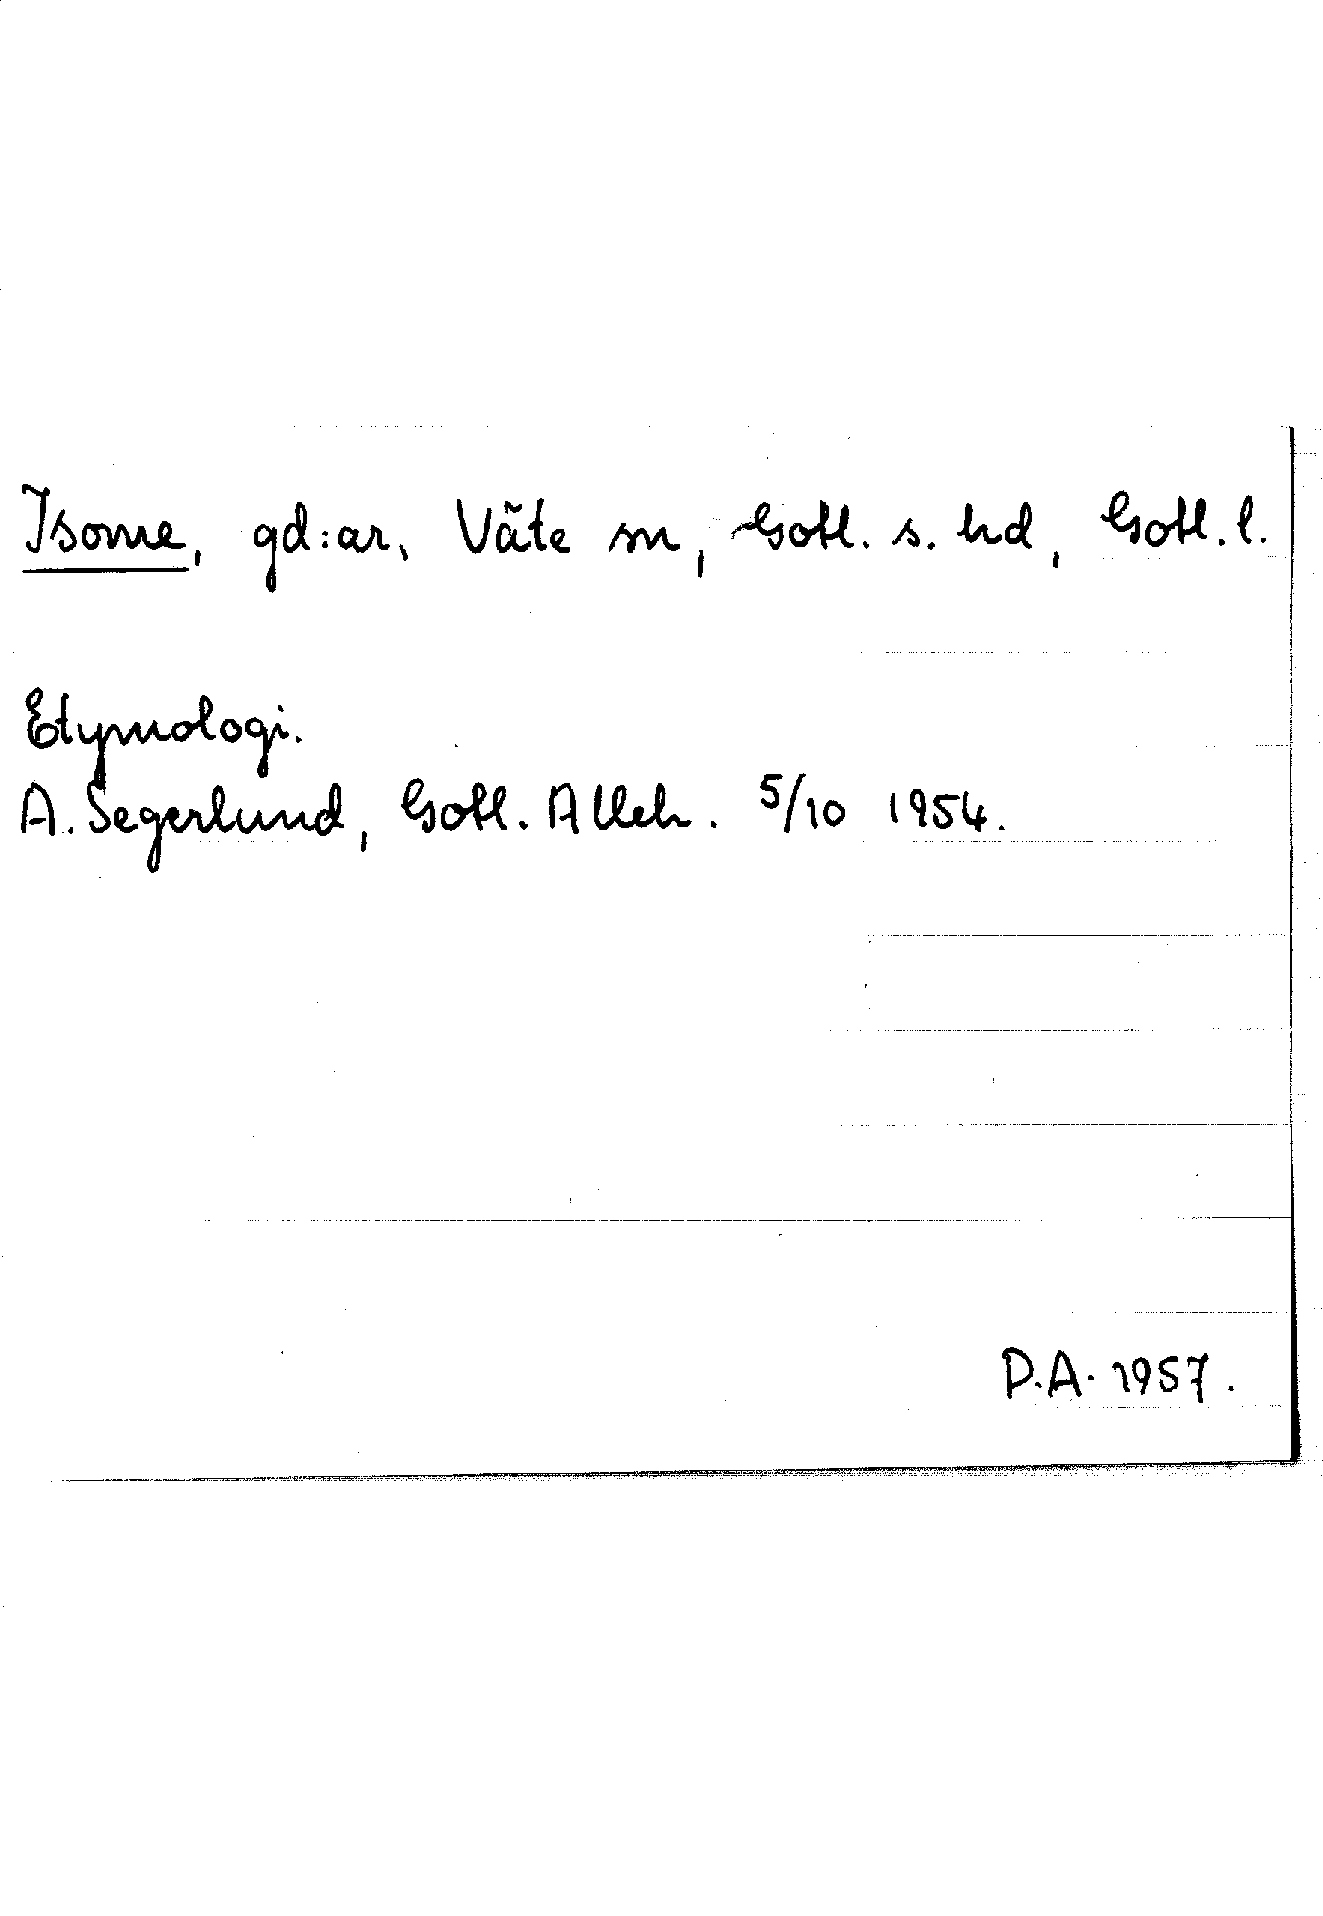 Isome, gd:ar, Väte sn, Gotl. s. hd, Gotl. l.
Etymologi.
A. Segerlund, Gotl. Alleh. 5/10 1954.
D.A. 1957.